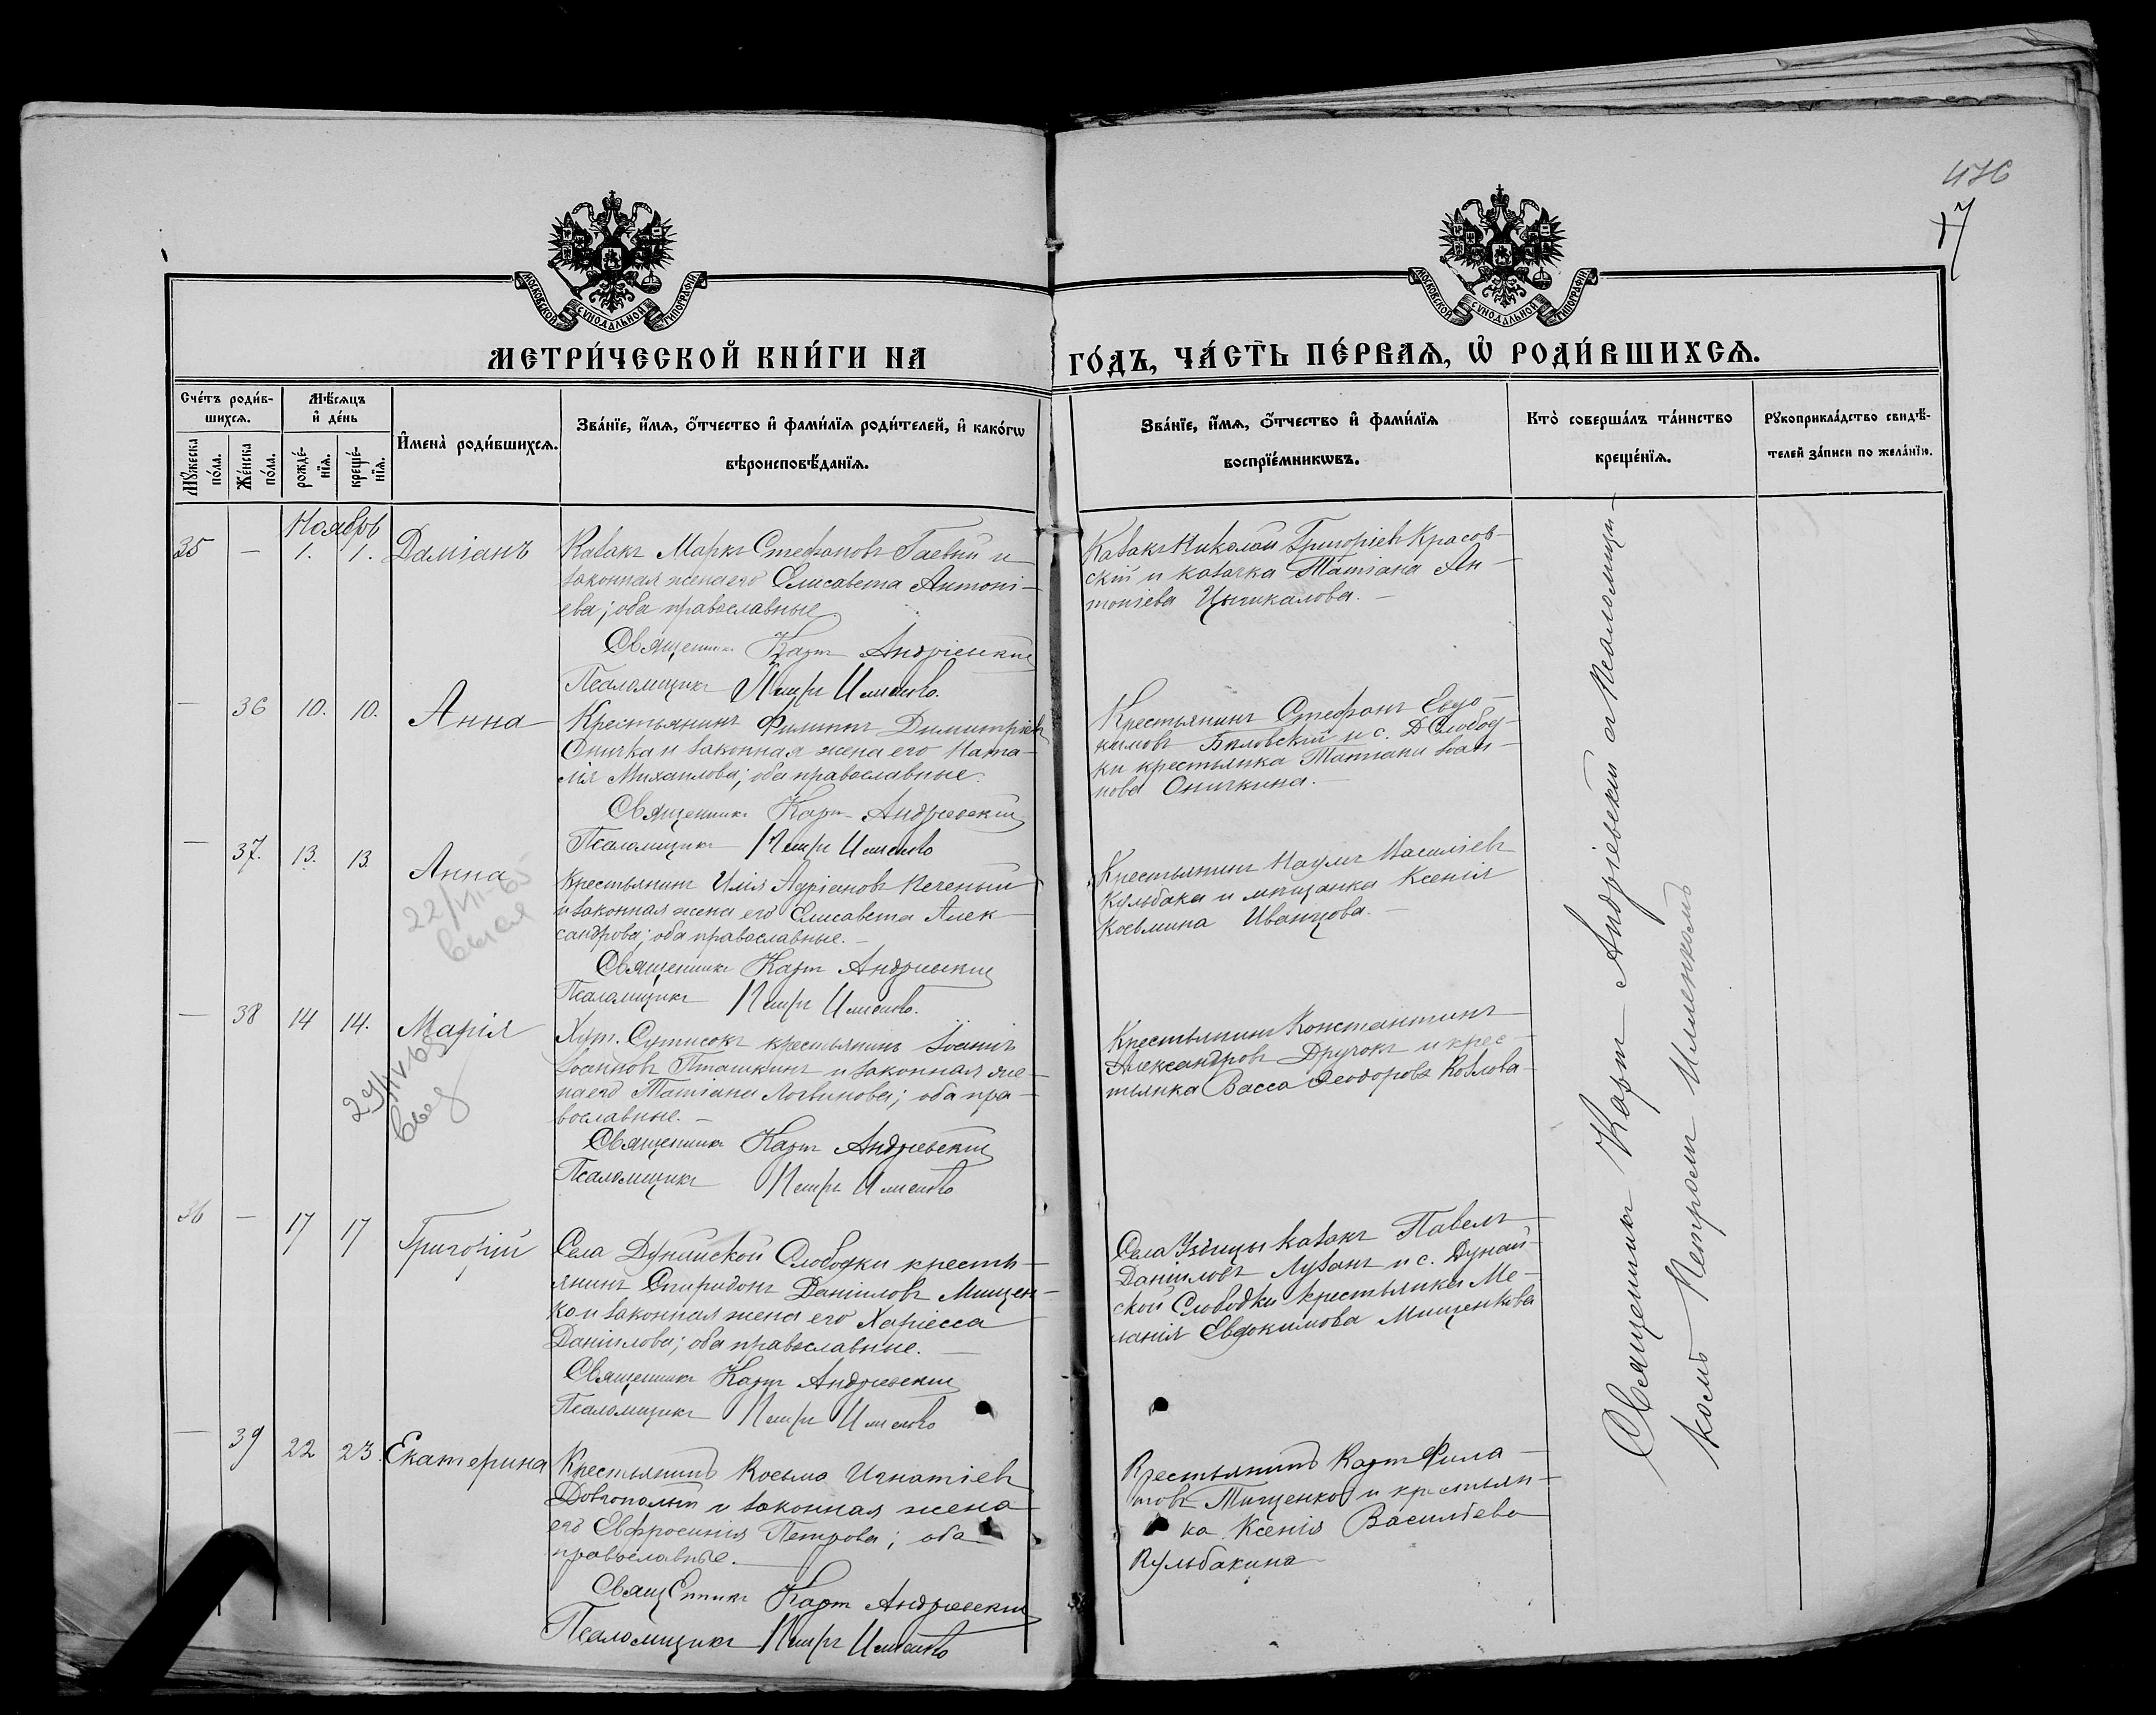 476
17
МОСКОВСКОЙ СѴНОДАЛЬНОЙ ТИПОГРАФІИ
МОСКОВСКОЙ СѴНОДАЛЬНОЙ ТИПОГРАФІИ
МЕТРИ́ЧЕСКОЙ КНИ́ГИ НА ГО́ДЪ, ЧА́СТЬ ПЕ́РВАѦ, Ѡ РОДИ́ВШИХСѦ.
Сче́тъ роди́вшихсѧ.
Мꙋ́жеска по́ла.
Же́нска по́ла.
Мѣ́сѧцъ и҆ де́нь
рожде́нїѧ.
креще́нїѧ.
И҆мена̀ роди́вшихсѧ.
Зва́нїе, и҆́мѧ, ѻ҆́тчество и҆ фами́лїѧ роди́телей, и҆ како́гѡ
вѣроисповѣ́данїѧ.
Зва́нїе, и҆́мѧ, ѻ҆́тчество и҆ фами́лїѧ
воспрїе́мникѡвъ.
Кто̀ соверша́лъ та́инство
креще́нїѧ.
Рꙋкоприкла́дство свидѣ́-
телей за́писи по жела́нїю.
Ноябрь
35 — 1. 1. Даміанъ
Казакъ Маркъ Стефановъ Гаевий и
законная жена его Елисавета Антоні-
ева; оба православные
Священникъ Карпъ Андріевскій
Псаломщикъ Петръ
Казакъ Николай Григоріевъ Красов-
скій и казачка Татіана Ан-
тоніева Цыгикалова. —
— 36 10. 10. Анна
Крестьянинъ Филиппъ Димитріевъ
Оничка и законная жена его Ната-
лія Михаилова; оба православные.
Священникъ Карпъ Андріевскій
Псаломщикъ Петръ
Крестьянинъ Стефанъ Евдо-
кимовъ Биловскій и с. Д Слобод-
ки крестьянка Татіана Іоан-
нова Оничкина. —
— 37. 13. 13 Анна
22/VII-65
Крестьянинъ Илія Адріановъ Печеный
и законная жена его Елисавета Алек-
сандрова; оба православные. —
Священникъ Карпъ Андріевскій
Псаломщикъ Петръ
Крестьянинъ Наумъ Василіевъ
Кульбака и мѣщанка Ксенія
Косьмина Иванцова. —
— 38 14 14. Марія
29/IV-65
Хут. Сутисокъ крестьянинъ Іоаннъ
Іоанновъ Пташкинъ и законная же-
на его Татіана Логвинова; оба пра-
вославные. —
Священникъ Карпъ Андріевскій
Псаломщикъ Петръ
Крестьянинъ Константинъ
Александровъ Дручокъ и крес-
тьянка Васса Ѳеодорова Козлова
36 — 17 17 Григорій
Села Дунайской Слободки кресть-
янинъ Спиридонъ Даніиловъ Мищен-
ко и законная жена его Харіесса
Даніилова; оба православные. —
Священникъ Карпъ Андріевскій
Псаломщикъ Петръ
Села Уздицы казакъ Павелъ
Даніиловъ Лузанъ и с. Дунай-
ской Слободки крестьянка Ме-
ланія Евдокимова Мищенкова
— 39 22 23. Екатерина
Крестьянинъ Косьма Игнатіевъ
Довгополый и законная жена
его Евфросинія Петрова; оба
православные. —
Священникъ Карпъ Андріевскій
Псаломщикъ Петръ
Крестьянинъ Карпъ Фила-
товъ Тищенко и крестьян-
ка Ксенія Васильева
Кульбакина
Священникъ Карпъ Андріевскій съ Псаломщи-
комъ Петромъ